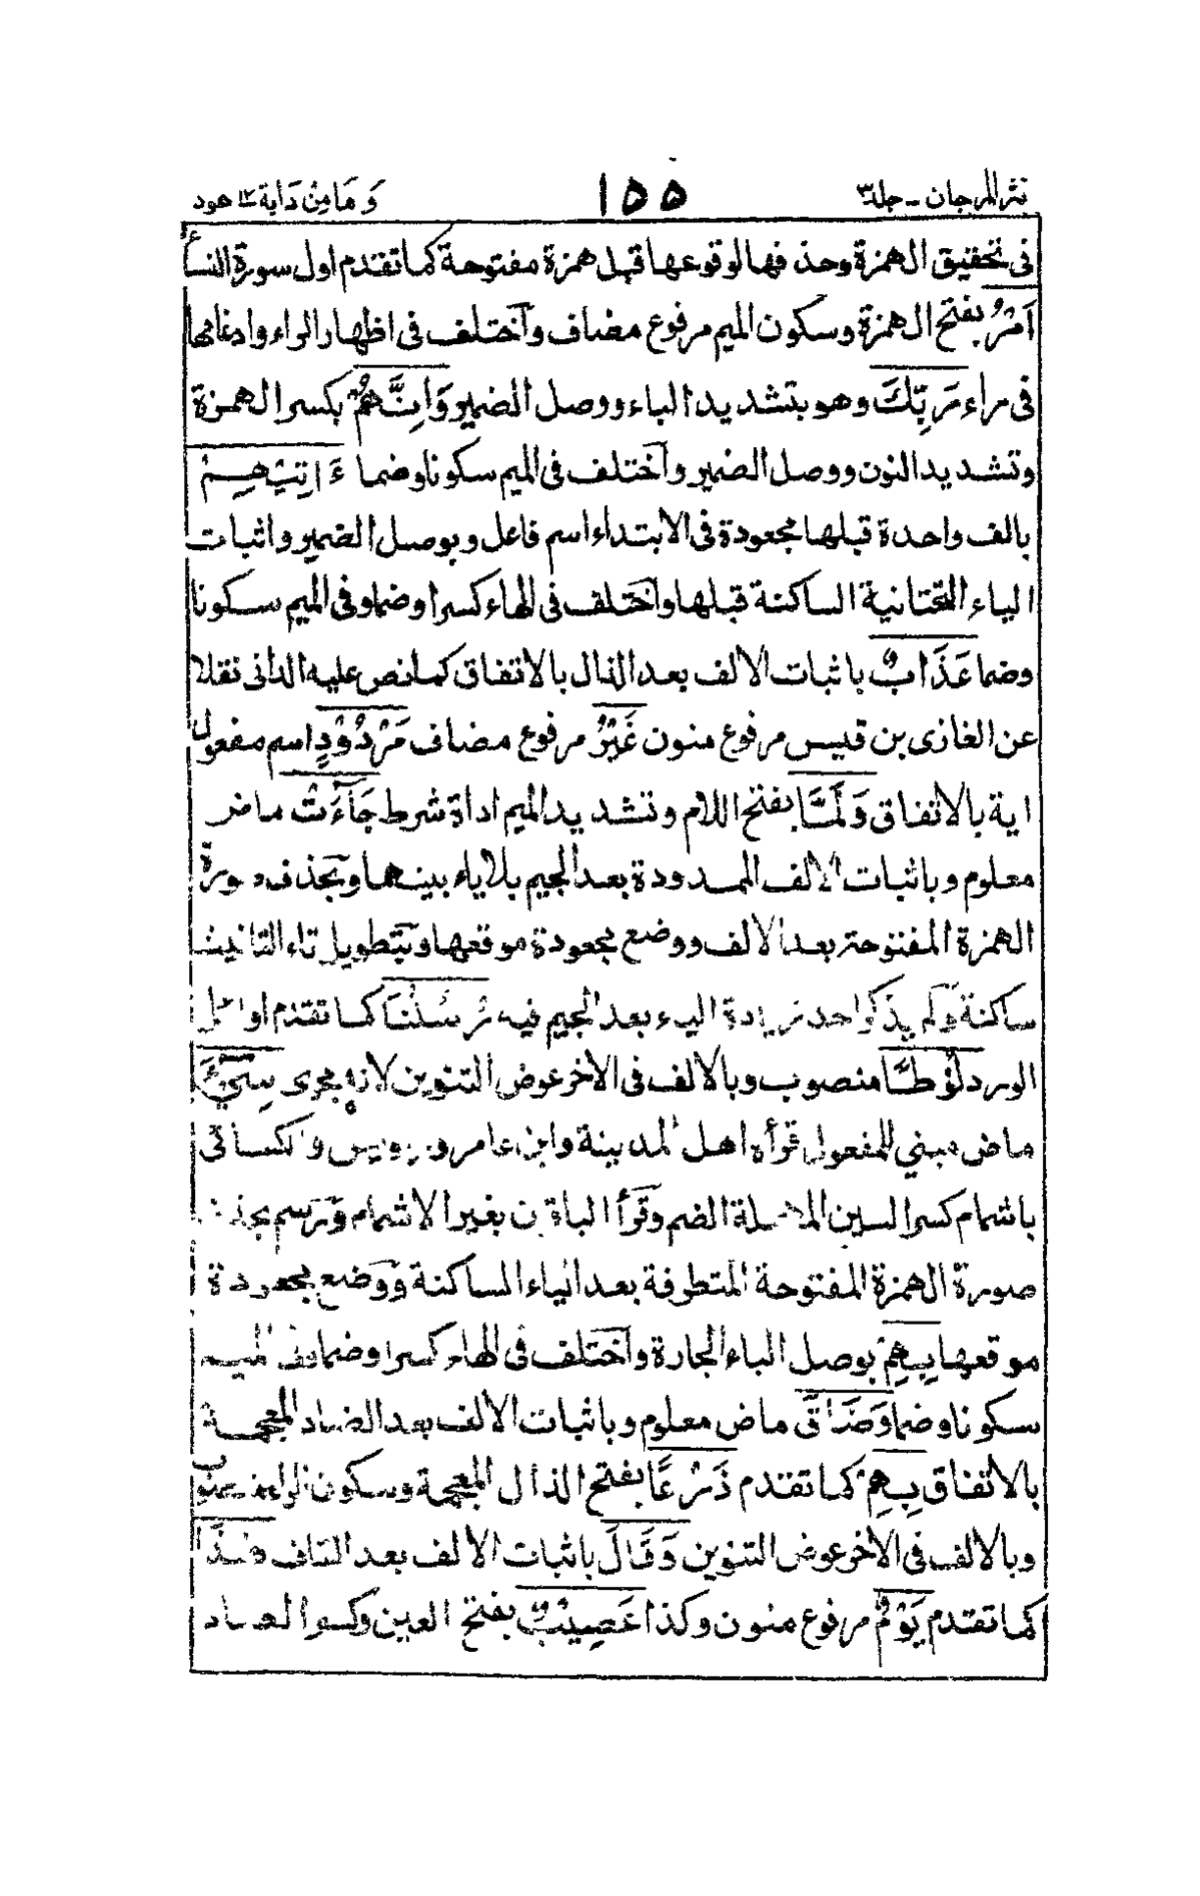 نثر المرجان ـ جلد ٣
١٥٥
وَمَا مِنْ دَابة ١٢ هود
فى تحقيق الهمزة وحذفها لوقوعها قبل همزة مفتوحة كما تقدم اول سورة النسأ
اَمْرُ بفتح الهمزة وسكون الميم مرفوع مضاف وآختلف فى اظهار الراء وادغامها
فى راء رَبِّكَ وهو بتشديد الباء ووصل الضمير وَاِنَّهُمْ بكسر الهمزة
وتشديد النون ووصل الضمير وآختلف فى الميم سكونا وضما ءَاتِيْهِمْ
بالف واحدة قبلها مجعودة فى الابتداء اسم فاعل وبوصل الضمير واثبات
الياء التحتانية الساكنة قبلها وآختلف فى الهاء كسرا وضما وفى الميم سكونا
وضما عَذَابٌ باثبات الالف بعد الذال بالاتفاق كما نص عليه الدانى نقلا
عن الغازى بن قيس مرفوع منون غَيْرُ مرفوع مضاف مَرْدُوْدٍ اسم مفعول
اية بالاتفاق وَلَمَّا بفتح اللام وتشديد الميم اداة شرط جَآءَتْ ماض
معلوم وباثبات الالف الممدودة بعد الجيم بلا ياء بينهما وبحذف صورة
الهمزة المفتوحة بعد الالف ووضع مجعودة موقعها وبتطويل تاء التانيث
ساكنة ولم يذكر احد زيادة الياء بعد الجيم فيه رُسُلُنَا كما تقدم اوائل
الورد لُوْطًا منصوب وبالالف فى الاخر عوض التنوين لانه مجرى سِيْٓءَ
ماض مبني للمفعول قرأه اهل المدينة وابن عامر ورويس والكسائى
باشمام كسر السين المهملة الضم وقرأ الباقون بغير الاشمام ورسم بحذف
صورة الهمزة المفتوحة المتطرفة بعد الياء الساكنة ووضع مجعودة
موقعها بِهِمْ بوصل الباء الجارة وآختلف فى الهاء كسرا وضما وفى الميم
سكونا وضما وَضَاقَ ماض معلوم وباثبات الالف بعد الضاد المعجمة
بالاتفاق بِهِمْ كما تقدم ذَرْعًا بفتح الذال المعجمة وسكون الراء منصوب
وبالالف فى الاخر عوض التنوين وَقَالَ باثبات الالف بعد القاف هٰذَا
كما تقدم يَوْمٌ مرفوع منون وكذا عَصِيْبٌ بفتح العين وكسر الصاد